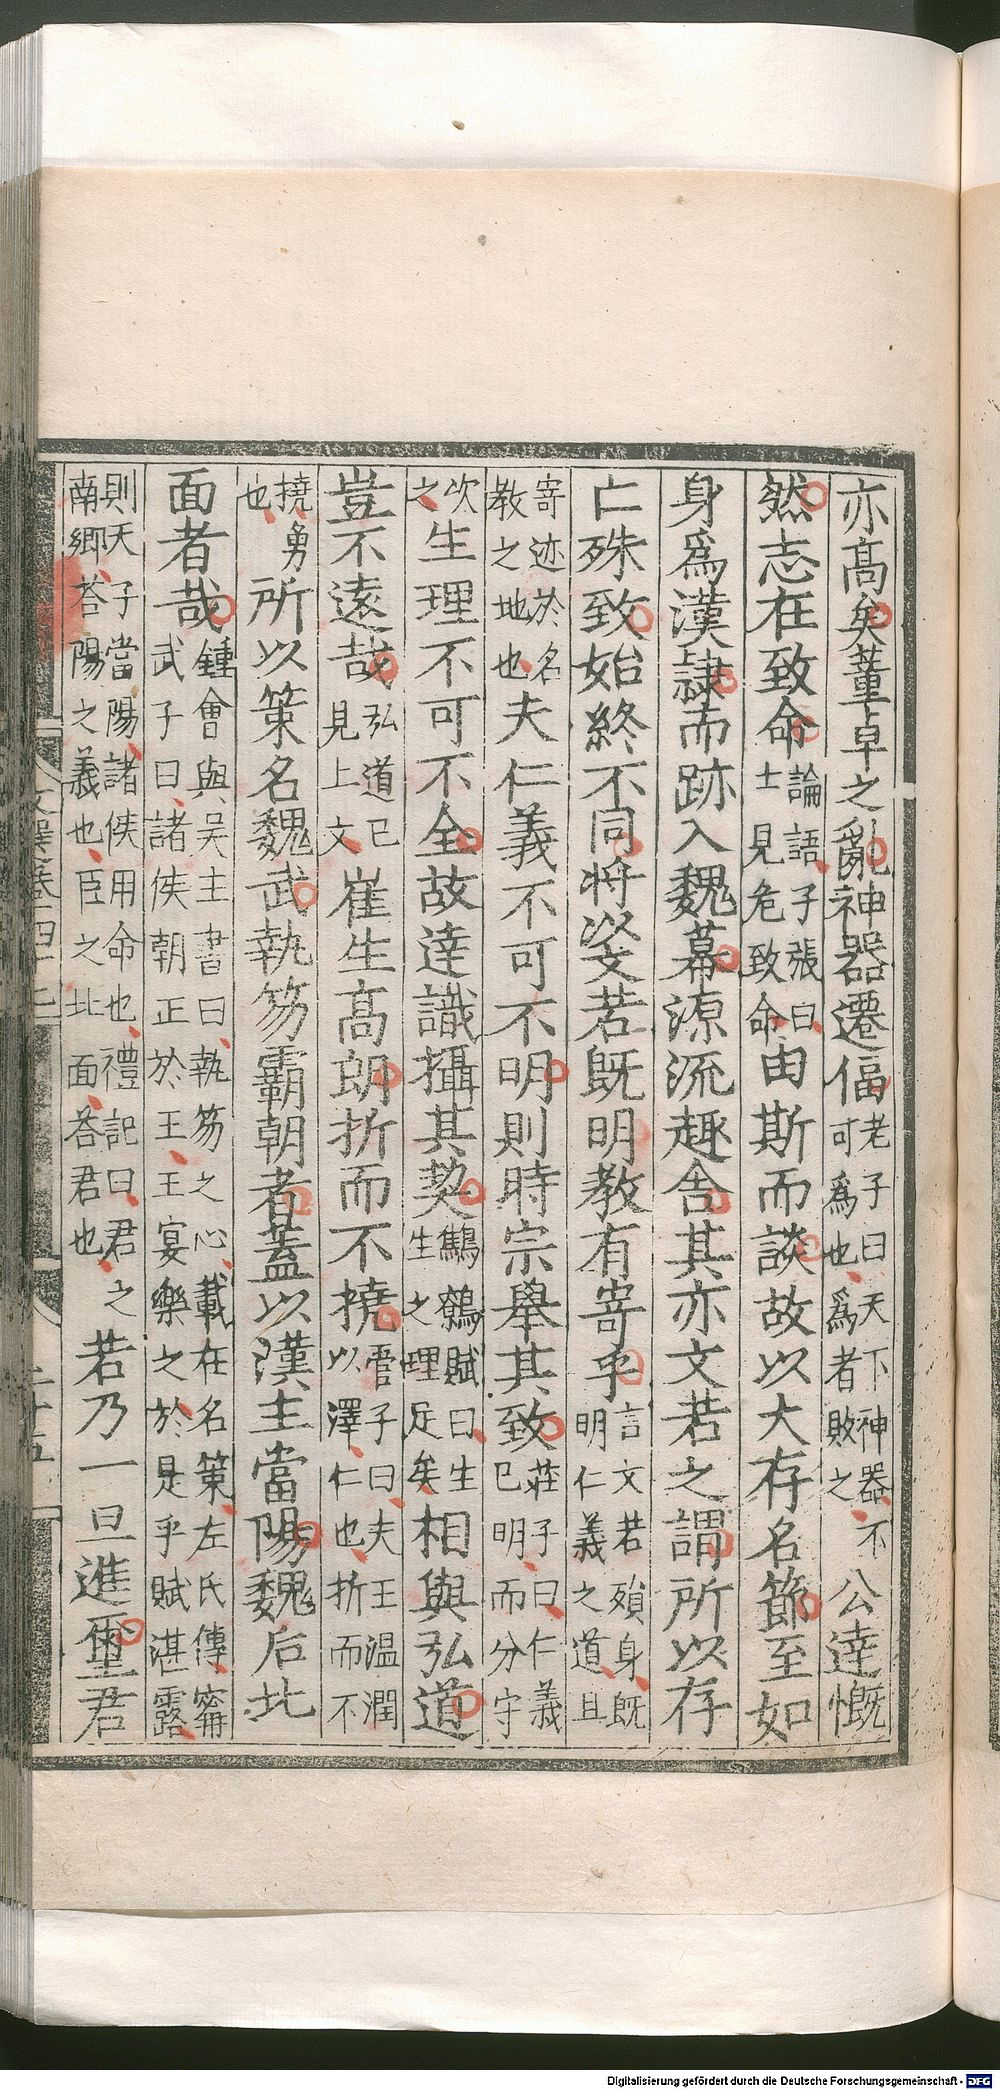 亦高矣董卓之亂神器遷偪老子曰天下神器不可爲也爲者敗之公達慨
然志在致命論語子張曰士見危致命由斯而談故以大存名節至如
身爲漢隷而跡入魏幕源流趣舍其亦文若之謂所以存
亡殊致始終不同將以文若既明教有寄乎言文若殞身既明仁義之道且
寄迹於名教之地也夫仁義不可不明則時宗舉其致莊子曰仁義已明而分守
次之生理不可不全故達識攝其契鷦鷯賦曰生生之理足矣相與弘道
豈不遠哉弘道已見上文崔生高朗折而不撓管子曰夫玉温潤以澤仁也折而不
撓勇也所以策名魏武執笏霸朝者蓋以漢主當陽魏后北
面者哉鍾會與吳主書曰執笏之心載在名策左氏傳甯武子曰諸侯朝正於王王宴樂之於是乎賦湛露
則天子當陽諸侯用命也禮記曰君之南郷荅陽之義也臣之北面荅君也若乃一旦進璽君
文選卷四十七
二十五
Digitalisierung gefördert durch die Deutsche Forschungsgemeinschaft - DFG